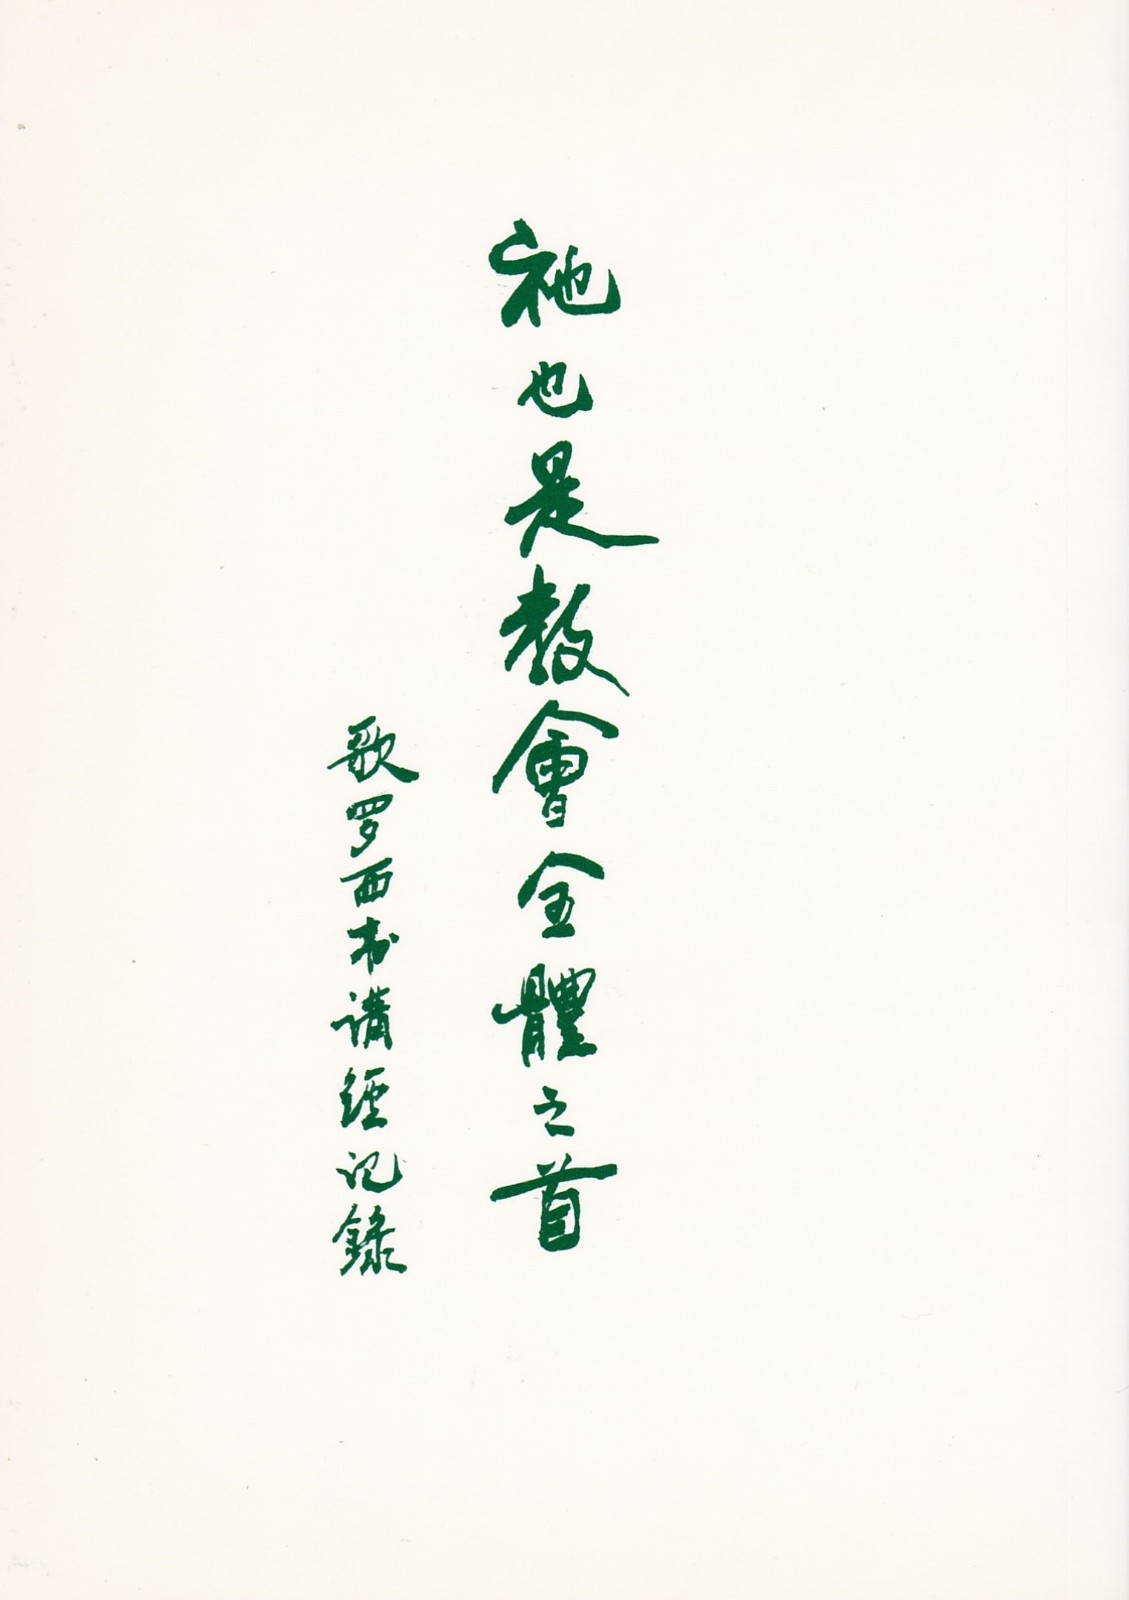 祂也是教會全體之首
歌罗西书講經记錄